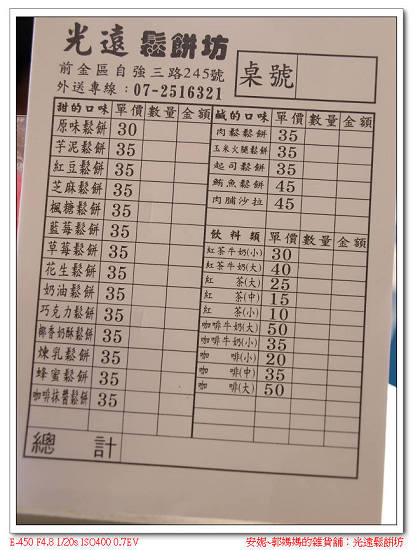 光遠 鬆餅坊
前金區自強三路245號
外送專線：07-2516321
桌號
甜的口味 單價 數量 金額
原味鬆餅 30
芋泥鬆餅 35
紅豆鬆餅 35
芝麻鬆餅 35
楓糖鬆餅 35
藍莓鬆餅 35
草莓鬆餅 35
花生鬆餅 35
奶油鬆餅 35
巧克力鬆餅 35
椰香奶酥鬆餅 35
煉乳鬆餅 35
蜂蜜鬆餅 35
咖啡抹醬鬆餅 35
總計
鹹的口味 單價 數量 金額
肉鬆鬆餅 35
玉米火腿鬆餅 35
起司鬆餅 35
鮪魚鬆餅 45
肉脯沙拉 45
飲料類 單價 數量 金額
紅茶牛奶(小) 30
紅茶牛奶(大) 40
紅茶(大) 25
紅茶(中) 15
紅茶(小) 10
咖啡牛奶(大) 50
咖啡牛奶(小) 35
咖啡(小) 20
咖啡(中) 35
咖啡(大) 50
E-450 F4.8 1/20s ISO400 0.7EV
安妮~郭媽媽的雜貨舖：光遠鬆餅坊